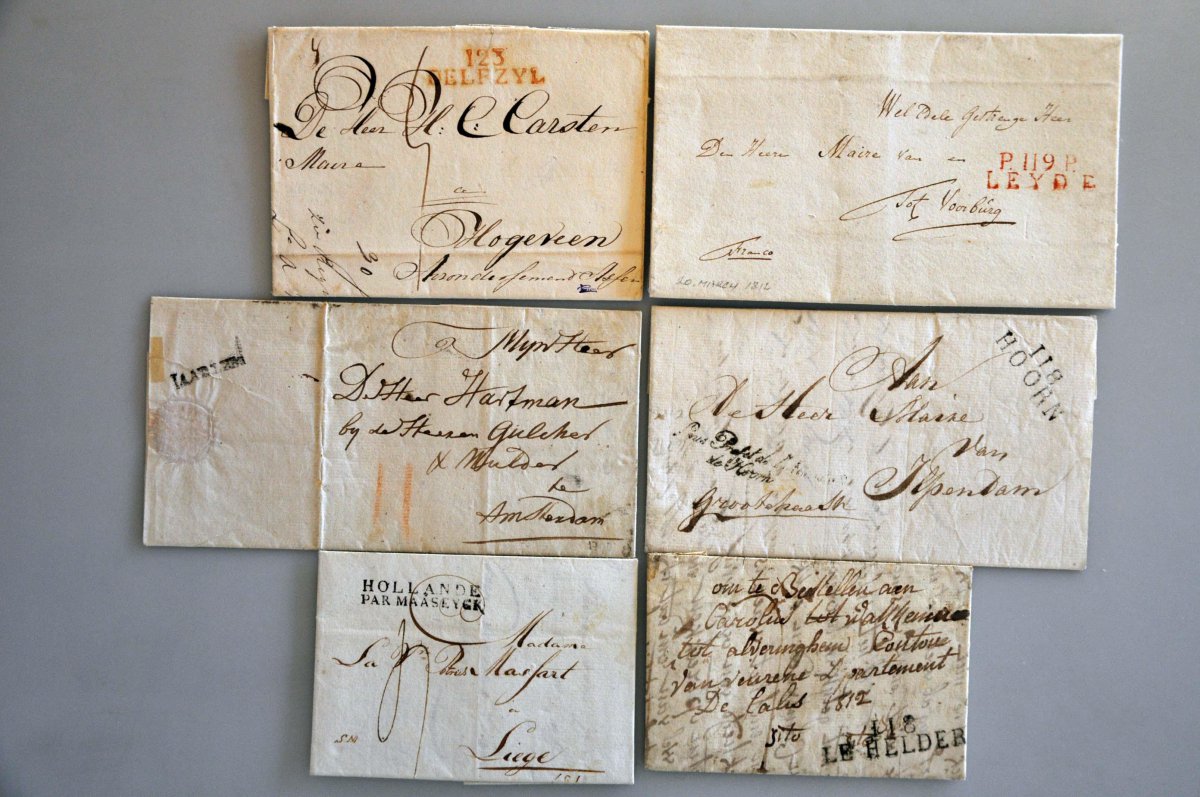 123
DELFZYL
De Heer H: C: Carsten
Maire
a
Hogeveen
Arrondissement Assen
30
Wel Edele Gestrenge Heer
Den Heere Maire van en
P.119.P.
LEYDE
Tot Voorburg
Franco
20. MARCH 1812
HAARLEM
a Mynheer
De Heer Hartman
by de Heeren Gulcher
& Mulder
te
Amsterdam
118
HOORN
Aan
De Heer Maire
Van
Ilpendam
de Hoorn
HOLLANDE
PAR MAASEYCK
Madame
La Massart
a
Liege
SN
181
om te Bestellen aan
Carolus tot
tot alveringhem Contou
van veurene
De Calis 1812
sito
118
LE HELDER